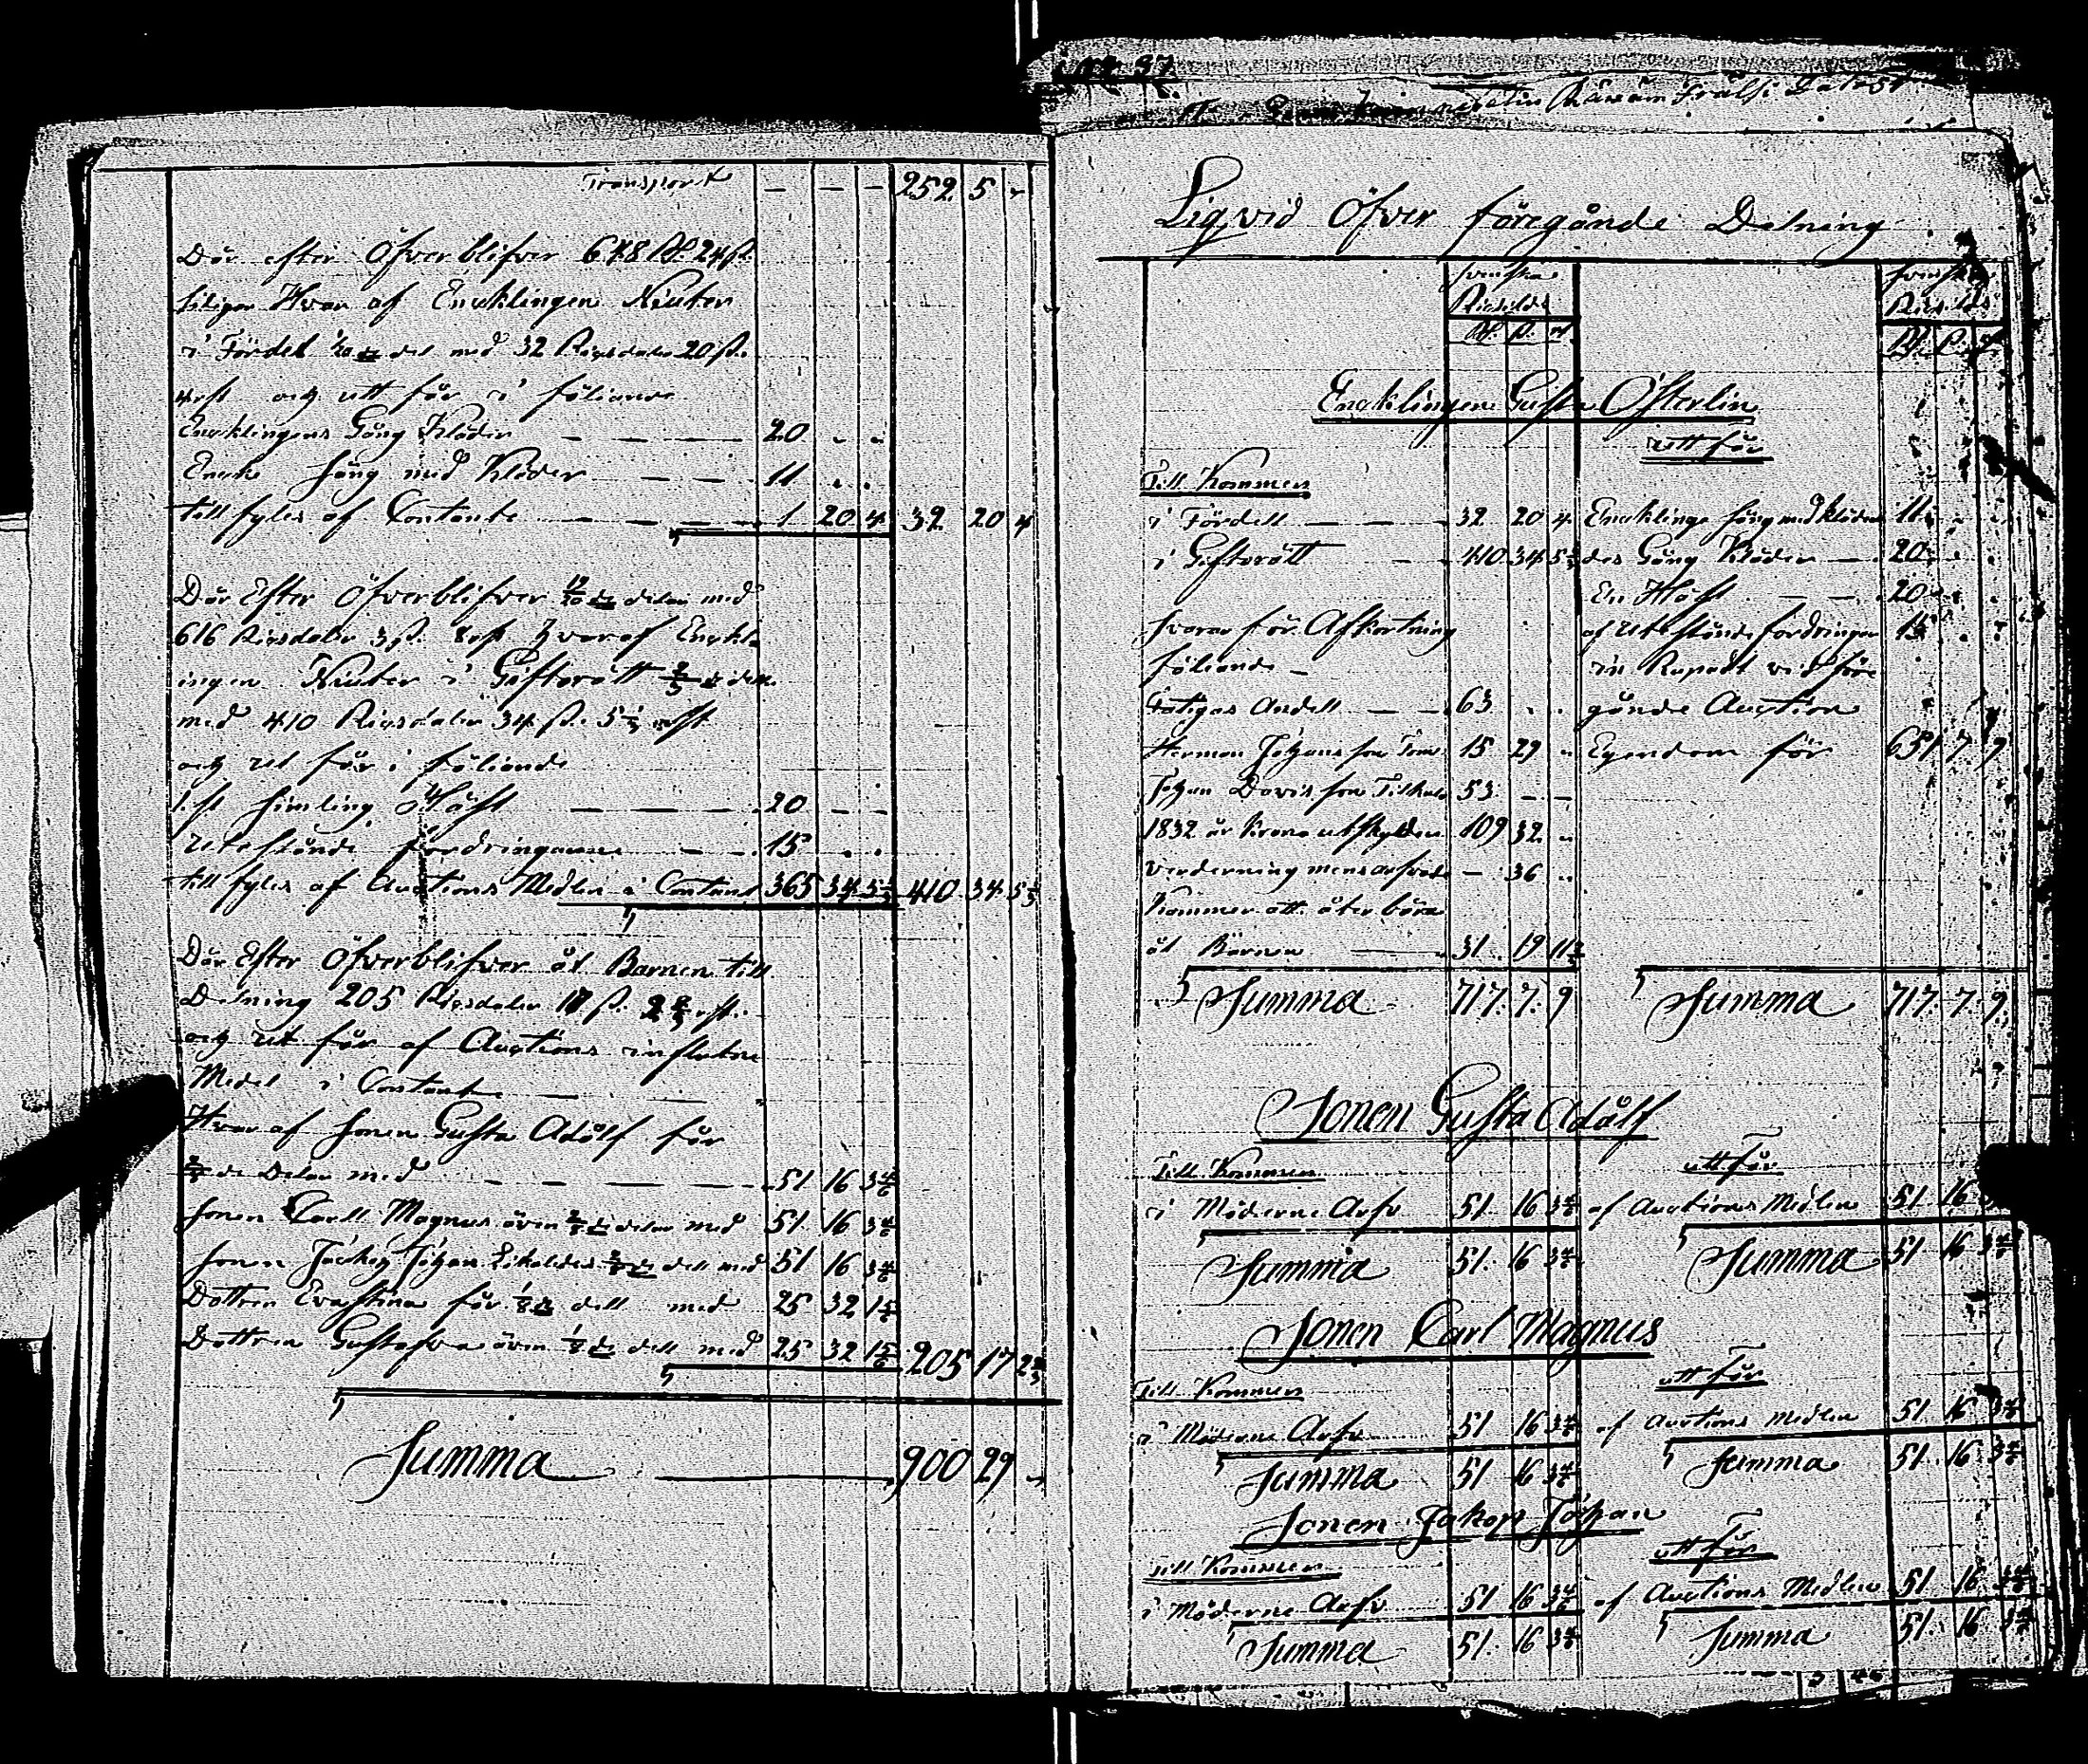 Transport — — — 252. 5 -
Där efter Öfverblifver 648 Rd. 24 ß.
Hvar af Encklingen Niuter
i Fördel 1/20 de del med 32 Rigsdaler 20 ß.
4 rst och utt får i föliande
Encklingens Gång Kläder — — — 20 - -
Encke Säng med Kläder — — — 11 - -
till fyles af Contante — — — 1 20 4 32 20 4
Där Efter Öfverblifver 19/20 de delar med
616 Rigsdaler 3 ß. 8 rst hvaraf Enckl
ingen Niuter i Giftorätt 2/3 de dell.
med 410 Rigsdaler 34 ß. 5 1/3 rst
och ut får i föliande
1. st Häst — — — 20 - -
Utestånde fordringarne — — 15 - -
till fyles af Auctions Medlen i Contant 365 34 5 1/3 410 34 5 1/3
Där Efter Öfverblifver åt Barnen till
Delning 205 Rigsdaler 17 ß. 2 2/3 rst.
och ut får af Auctions influtne
Medel i Contante
Hvar af Sonen Gusta Adålf får
2/8 de Delar med — — — 51 16 3 4/6
Sonen Carll Magnus även 2/8 de delar med 51 16 3 4/6
Sonen Jackop Johan Likaledes 2/8 de dell med 51 16 3 4/6
Dottren Evastina får 1/8 de dell med 25 32 1 5/6
Dottren Gustafva även 1/8 de dell med 25 32 1 5/6 205 17 2 2/3
Summa — 900 29 -
Liqvid Öfver föregånde Delning
Svenska
Riksilds
Rd. ß. rst
Svenska
Riksilds
Rd. ß. rst
Encklingen Gusta Österlin
Till Kommer
utt får
i Fördell — — — 32 20 4 Encklings Säng med kläder 11 - -
i Giftorätt — — 410 34 5 1/3 des Gång Kläder — 20 - -
En Häst — — 20 - -
Svarar för Afkortning af Utestånde fordringar 15 - -
föliande —
vid före
Fatigas Andell — — 63 - - gånde Auction
Herman Johans son 15 29 - Egendom för 651 7 9
Johan Davis son 53 — —
1832 år Krono utskylder 109 32 -
Verderning mens arfvode — 36 -
Kommer att åter bära
åt Barnen — 31. 19 11 2/3
Summa 717. 7. 9 Summa 717. 7. 9.
Sonen Gusta Adålf
Till Kommer utt får
i Möderne Arfv 51. 16 3 4/6 af Auctions Medlen 51 16
Summa 51. 16 3 4/6 Summa 51 16 3 4/6
Sonen Carl Magnus
Till Kommer utt får
i Möderne Arfv 51 16 3 4/6 af Auctions Medlen 51 16 3 4/6
Summa 51 16 3 4/6 Summa 51. 16 3 4/6
Sonen Jakop Johan
Till Kommer utt får
i Möderne Arfv 51 16 3 4/6 af Auctions Medlen 51 16 3 4/6
Summa 51. 16 3 4/6 Summa 51. 16 3 4/6